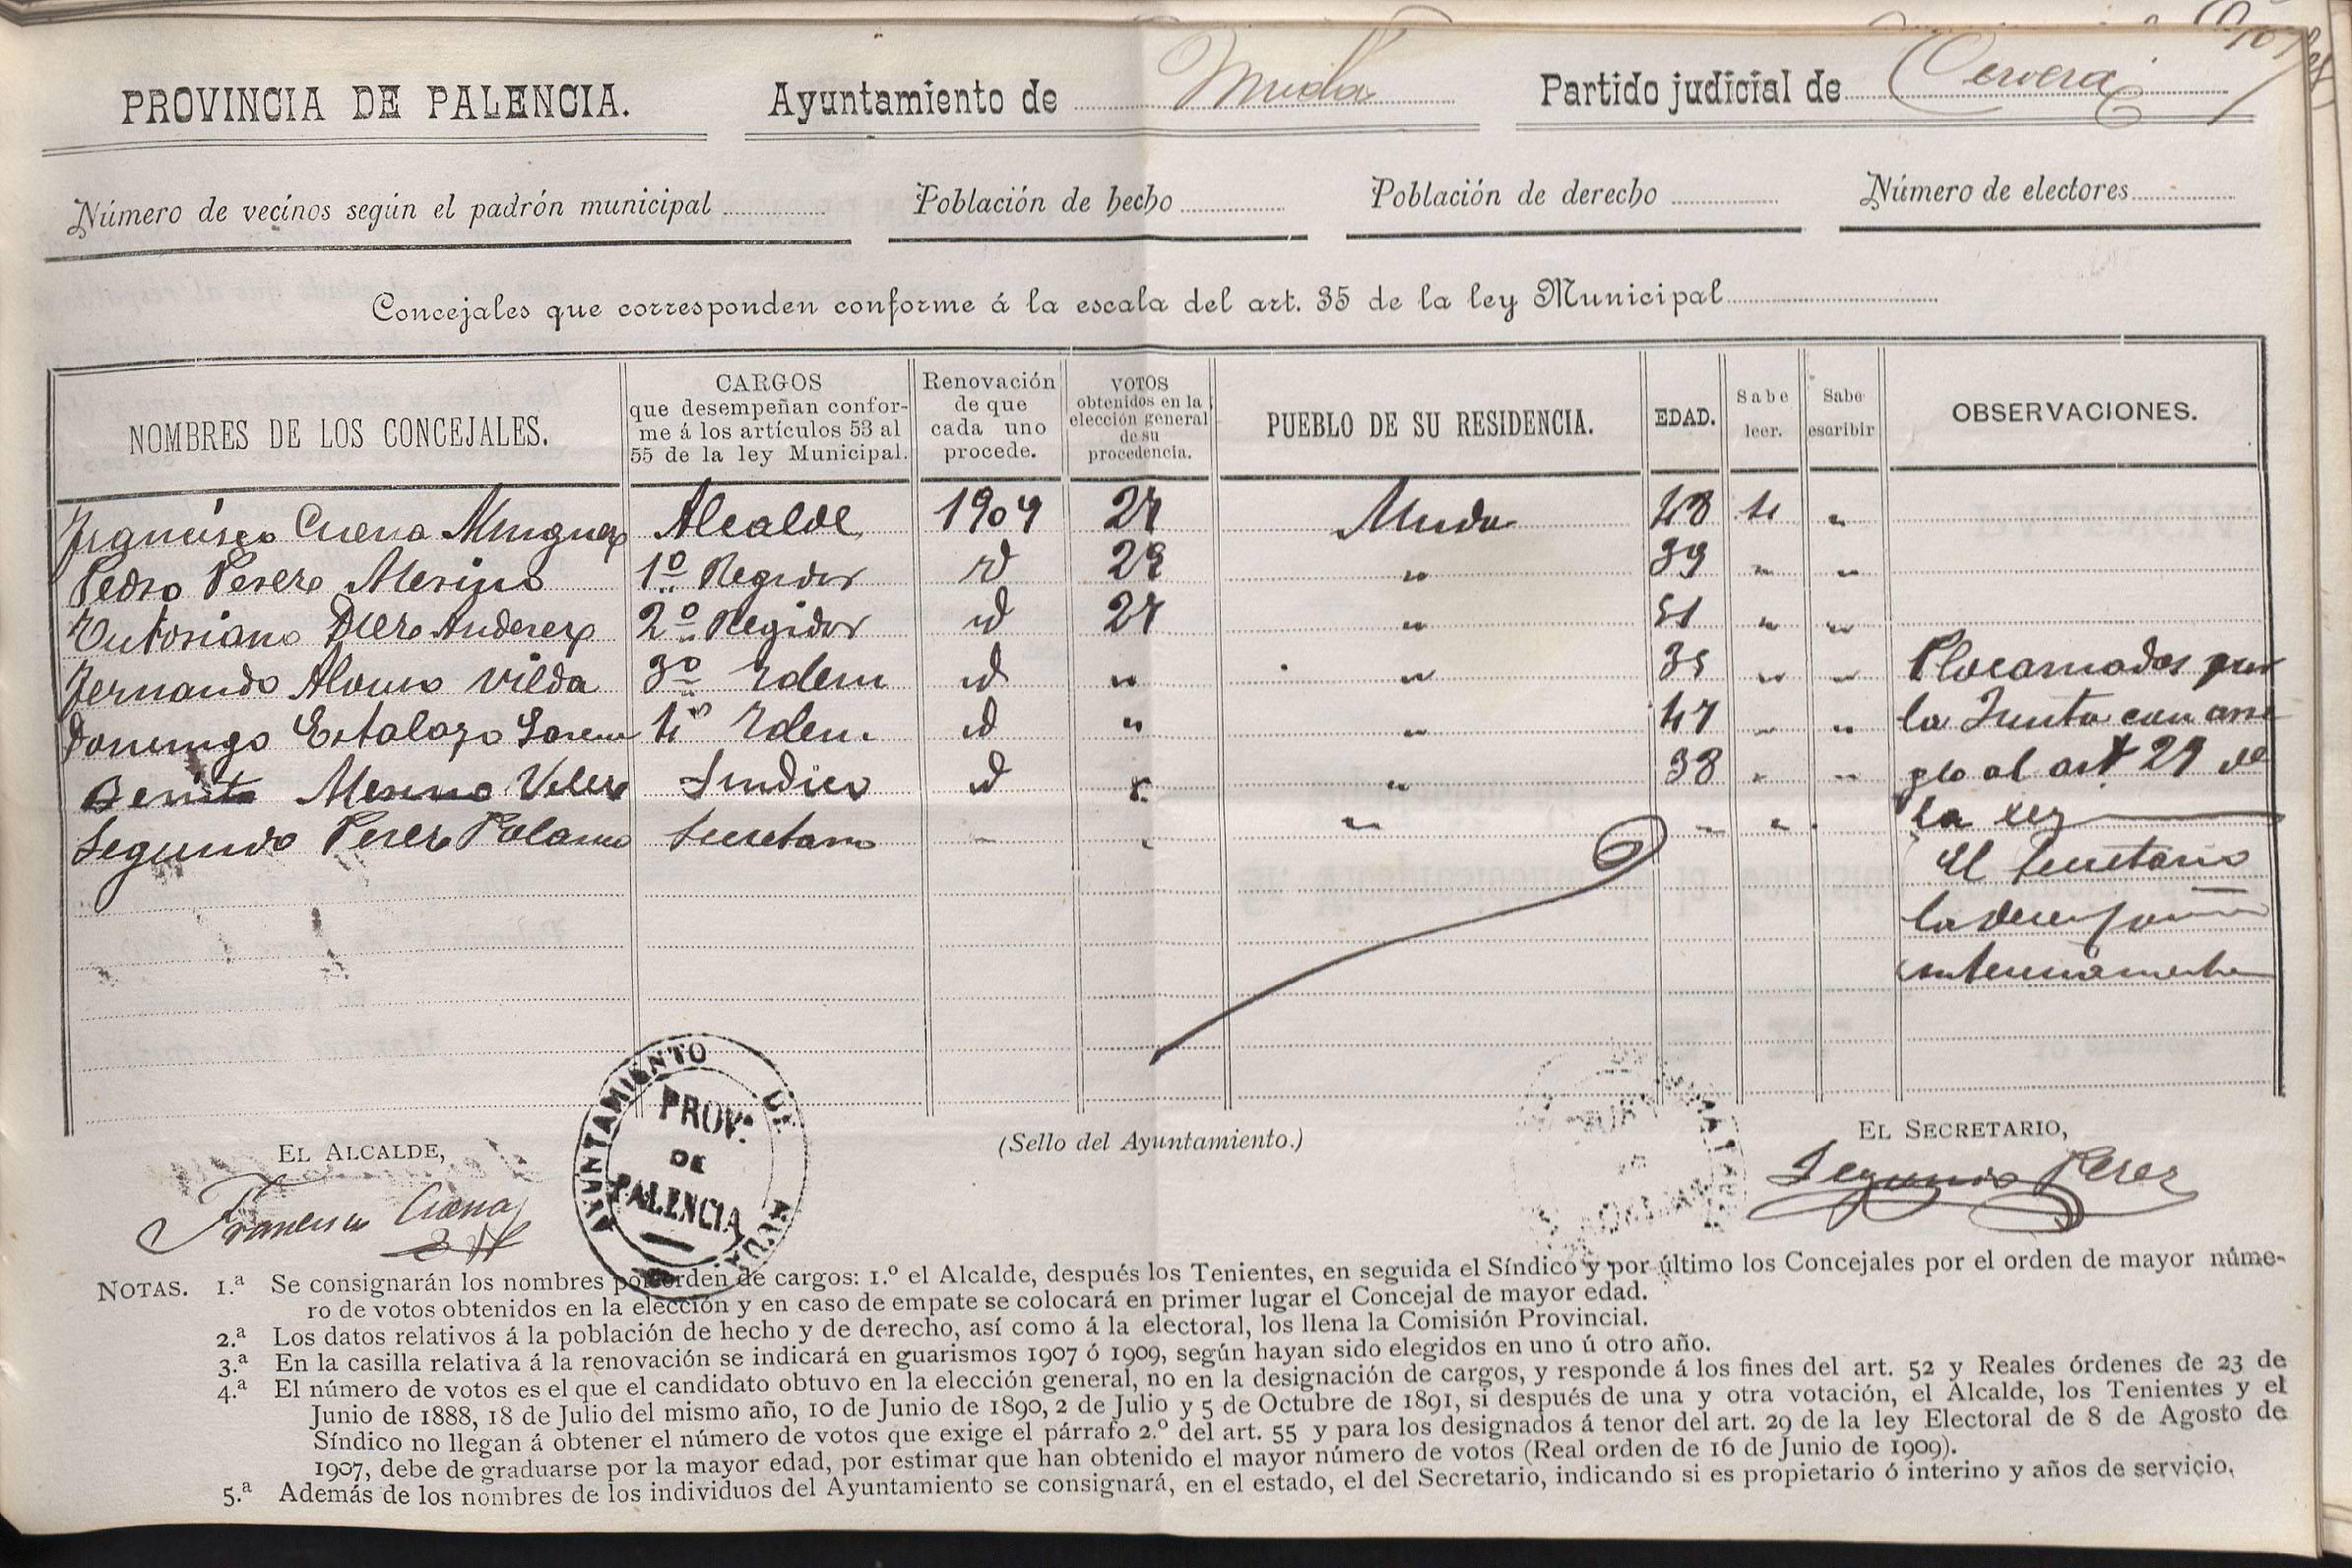 PROVINCIA DE PALENCIA. Ayuntamiento de Muda Partido judicial de Cervera
Número de vecinos según el padrón municipal Población de hecho Población de derecho Número de electores
Concejales que corresponden conforme á la escala del art. 35 de la ley Municipal
NOMBRES DE LOS CONCEJALES.
CARGOS
que desempeñan confor-
me á los artículos 53 al
55 de la ley Municipal.
Renovación
de que
cada uno
procede.
VOTOS
obtenidos en la
elección general
de su
procedencia.
PUEBLO DE SU RESIDENCIA.
EDAD.
Sabe
leer.
Sabe
escribir
OBSERVACIONES.
Francisco Cuena Alcalde 1909 27 Muda 48 si "
Pedro Perez Merino 1º Regidor id 28 " 39 " "
2º Regidor id 27 " 51 " "
Fernando Alonso Vilda 3º Idem id " " 35 " "
Domingo Estalayo 4º Idem id " " 47 " "
Benito Merino Velez Sindico id " " 38 " "
Segundo Perez Polanco Secretario " " " "
Proclamados por
la Junta con arre
glo al art 29 de
la ley
El Secretario
la desempeña
interinamente
EL ALCALDE,
Francisco Cuena
AYUNTAMIENTO DE
PROV.
DE
PALENCIA
(Sello del Ayuntamiento.)
EL SECRETARIO,
Segundo Perez
NOTAS. 1.ª Se consignarán los nombres por orden de cargos: 1.º el Alcalde, después los Tenientes, en seguida el Síndico y por último los Concejales por el orden de mayor núme-
ro de votos obtenidos en la elección y en caso de empate se colocará en primer lugar el Concejal de mayor edad.
2.ª Los datos relativos á la población de hecho y de derecho, así como á la electoral, los llena la Comisión Provincial.
3.ª En la casilla relativa á la renovación se indicará en guarismos 1907 ó 1909, según hayan sido elegidos en uno ú otro año.
4.ª El número de votos es el que el candidato obtuvo en la elección general, no en la designación de cargos, y responde á los fines del art. 52 y Reales órdenes de 23 de
Junio de 1888, 18 de Julio del mismo año, 10 de Junio de 1890, 2 de Julio y 5 de Octubre de 1891, si después de una y otra votación, el Alcalde, los Tenientes y el
Síndico no llegan á obtener el número de votos que exige el párrafo 2.º del art. 55 y para los designados á tenor del art. 29 de la ley Electoral de 8 de Agosto de
1907, debe de graduarse por la mayor edad, por estimar que han obtenido el mayor número de votos (Real orden de 16 de Junio de 1909).
5.ª Además de los nombres de los individuos del Ayuntamiento se consignará, en el estado, el del Secretario, indicando si es propietario ó interino y años de servicio.